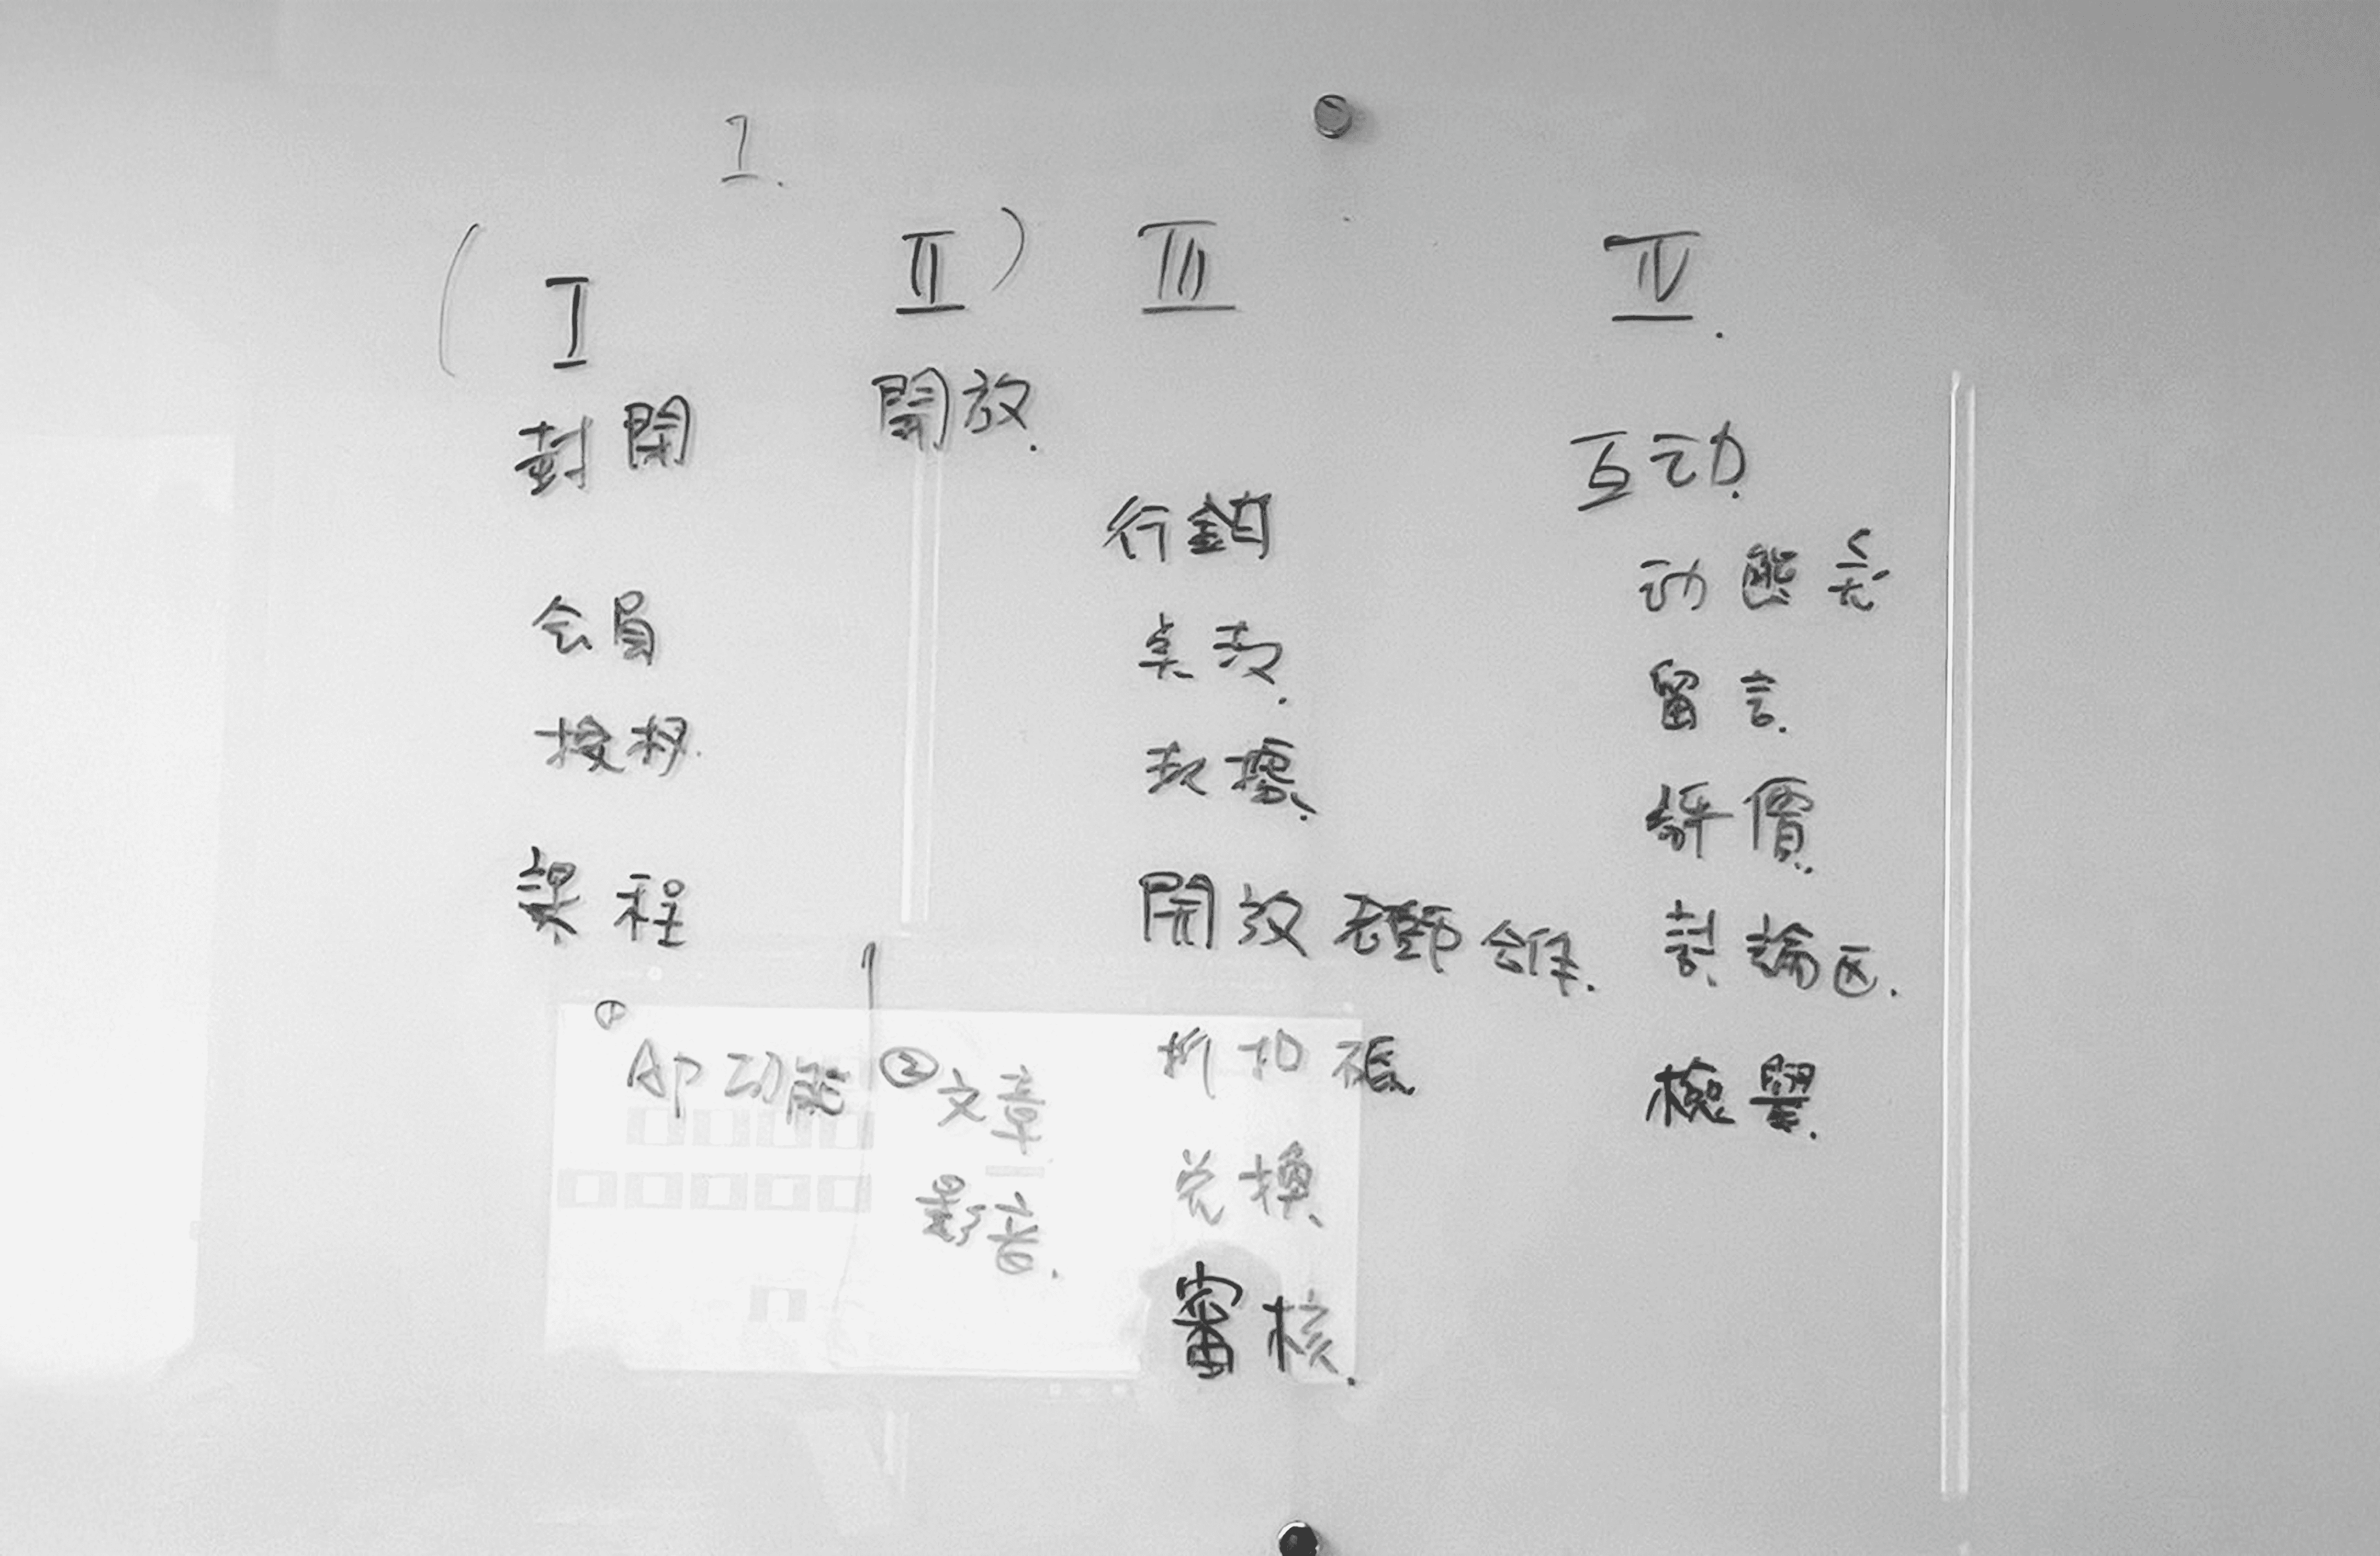 I.
( I II ) III IV.
封閉
会員
授权.
課程
① AP 功能
開放.
② 文章
影音.
行銷
点数.
数據.
開放老師合作.
折扣碼.
兌換.
審核.
互动.
动態
留言.
評價.
討論区.
檢舉.